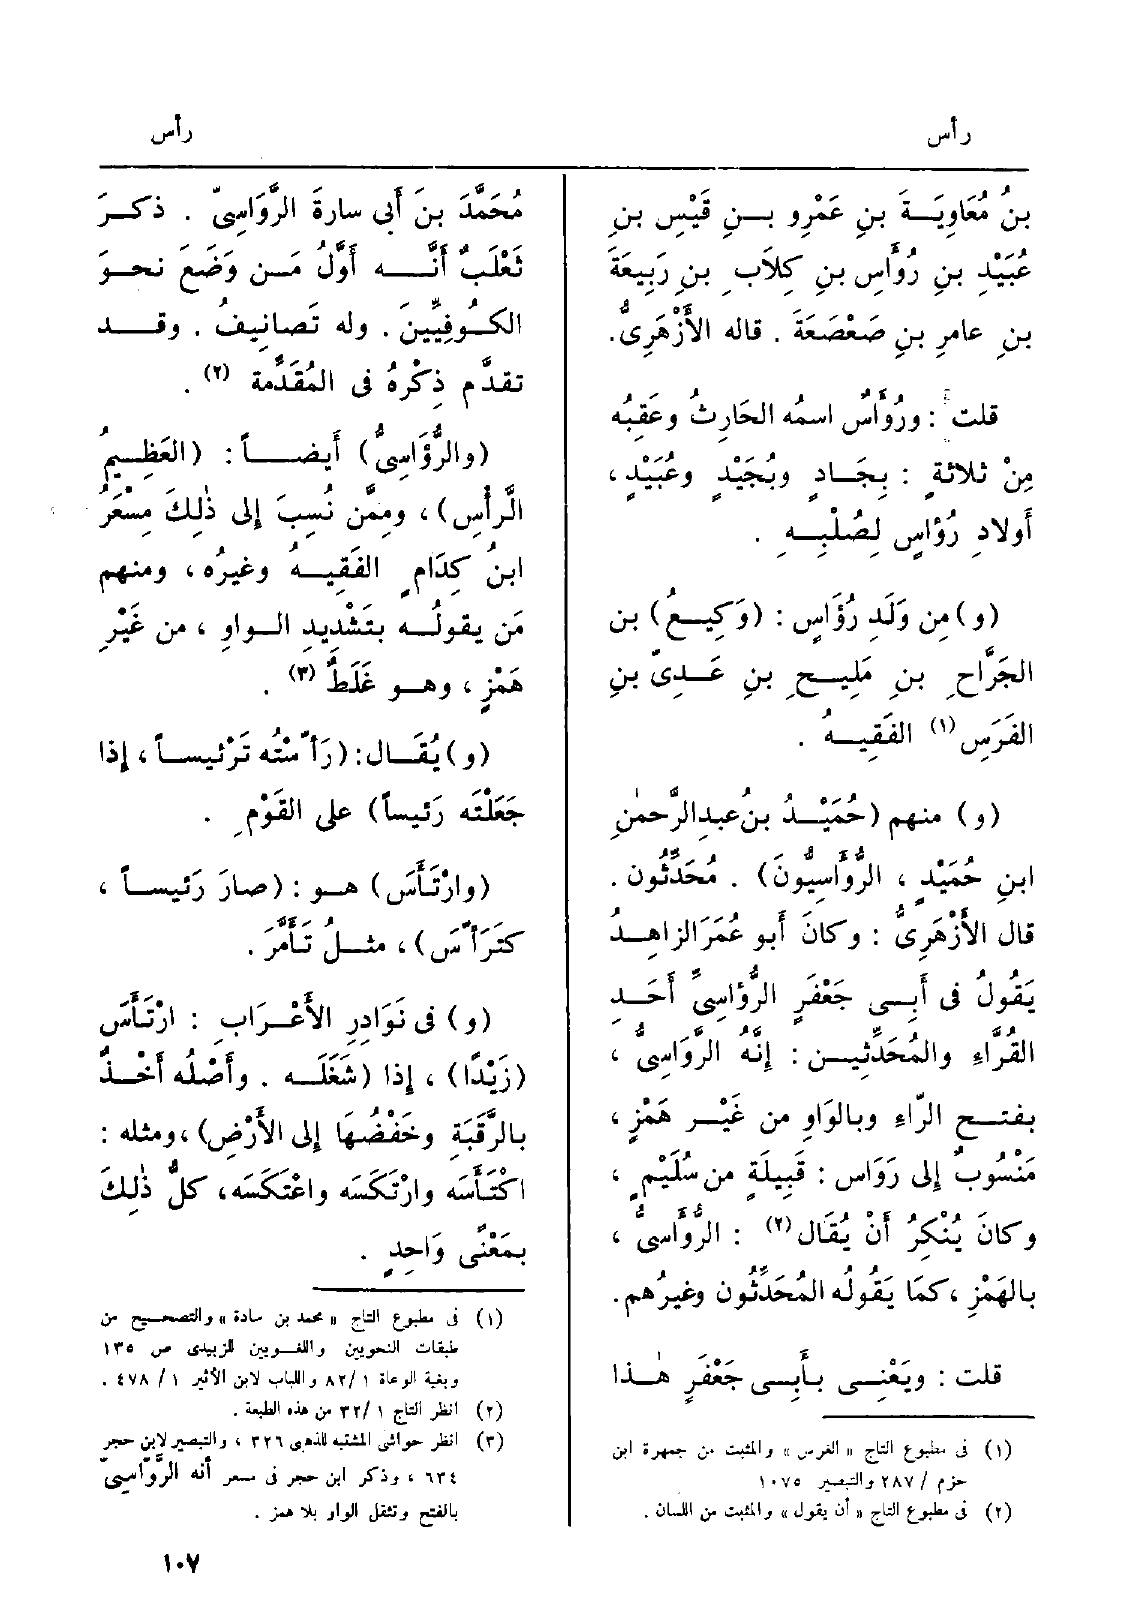 رأس
رأس
بنُ مُعَاوِيَـةَ بنِ عَمْرِو بـنِ قَيْسِ بنِ
عُبَيْدِ بنِ رُؤَاسِ بنِ كِلَابِ بنِ رَبِيعَةَ
بنِ عامرِ بنِ صَعْصَعَةَ . قاله الأَزْهَرِىُّ.
قلت : ورُؤَاسٌ اسمُه الحَارِثُ وعَقِبُه
مِنْ ثلاثةٍ : بِجَـادٍ وبُجَيْدٍ وعُبَيْدٍ ،
أولادِ رُؤَاسٍ لِصُلْبِـهِ .
(و) مِن وَلَدِ رُؤَاسٍ : (وَكِيـعُ) بن
الجَرَّاحِ بنِ مَلِيـحِ بنِ عَـدِىّ بنِ
الفَرَسِ (١) الفَقِيـهُ .
(و) منهم (حُمَيْـدُ بنُ عبدِ الرَّحمٰنِ
ابنِ حُمَيْدٍ ، الرُّؤَاسِيُّونَ) . مُحَدِّثُون .
قال الأَزْهَرِىُّ : وكانَ أبو عُمَرَ الزاهِـدُ
يَقُولُ فى أَبِـى جَعْفَرٍ الرُّؤَاسِىِّ أَحَـدِ
القُرَّاءِ والمُحَدِّثِيـن : إنَّهُ الرَّوَاسِىُّ ،
بفتـح الرّاءِ وبالوَاوِ من غَيْـر هَمْزٍ ،
مَنْسُوبٌ إلى رَوَاس : قَبِيلَةٍ من سُلَيْمٍ ،
وكانَ يُنْكِرُ أَنْ يُقَال (٢) : الرُّؤَاسىُّ ،
بالهَمْزِ ، كمَا يَقُولُه المُحَدِّثُون وغيرُهم.
قلت : ويَعْنِـى بـأَبِـى جَعْفَرٍ هٰـذا
(١) فى مطبوع التاج « الفرس » والمثبت من جمهرة ابن
حزم / ٢٨٧ والتبصير ١٠٧٥
(٢) فى مطبوع التاج « أن يقول » والمثبت من اللسان .
مُحَمَّدَ بنَ أَبى سارةَ الرَّوَاسِىّ . ذكـرَ
ثَعْلَبٌ أَنَّـه أَوَّلُ مَـن وَضَعَ نحـوَ
الكُـوفِيِّينَ . وله تَصانِيفُ . وقـد
تقدَّم ذِكْرُهُ فى المُقَدَّمة (٢) .
(والرُّؤَاسِىُّ) أَيضـاً : (العَظِيـمُ
الرَّأْسِ) ، وممَّن نُسِبَ إلى ذٰلِكَ مِسْعَرُ
ابنُ كِدَامٍ الفَقِيـهُ وغيرُه ، ومنهم
مَن يقولُـه بتَشْدِيدِ الـواوِ ، من غَيْرِ
هَمْزٍ ، وهـو غَلَطٌ (٣) .
(و) يُقَـال : (رَأَّسْتُه تَرْئيسـاً ، إذا
جَعَلْتَه رَئيساً) على القَوْمِ .
(وارْتَأَسَ) هـو : (صارَ رَئيسـاً ،
كتَرَأَّسَ) ، مثـلُ تَأَمَّرَ .
(و) فى نَوَادِرِ الأَعْـرَابِ : ارْتَأَسَ
(زَيْدًا) ، إذا (شَغَلَـه . وأَصْلُه أَخْـذٌ
بالرَّقَبَةِ وخَفْضُهَا إلى الأَرْضِ) ، ومثله :
اكْتَأَسَه وارْتكَسَه واعْتَكَسَه ، كلُّ ذٰلِكَ
بمَعْنًى وَاحِدٍ .
(١) فى مطبوع التاج « محمد بن سادة » والتصحيح من
طبقات النحويين واللغـويين للزبيدى ص ١٣٥
وبغية الوعاة ١ /٨٢ واللباب لابن الأثير ١ / ٤٧٨ .
(٢) انظر التاج ١ /٣٢ من هذه الطبعة .
(٣) انظر حواشى المشتبه للذهبى ٣٢٦ ، والتبصير لابن حجر
٦٣٤ ، وذكر ابن حجر فى مسعر أنه الرَّوّاسِىّ
بالفتح وتثقل الواو بلا همز .
١٠٧